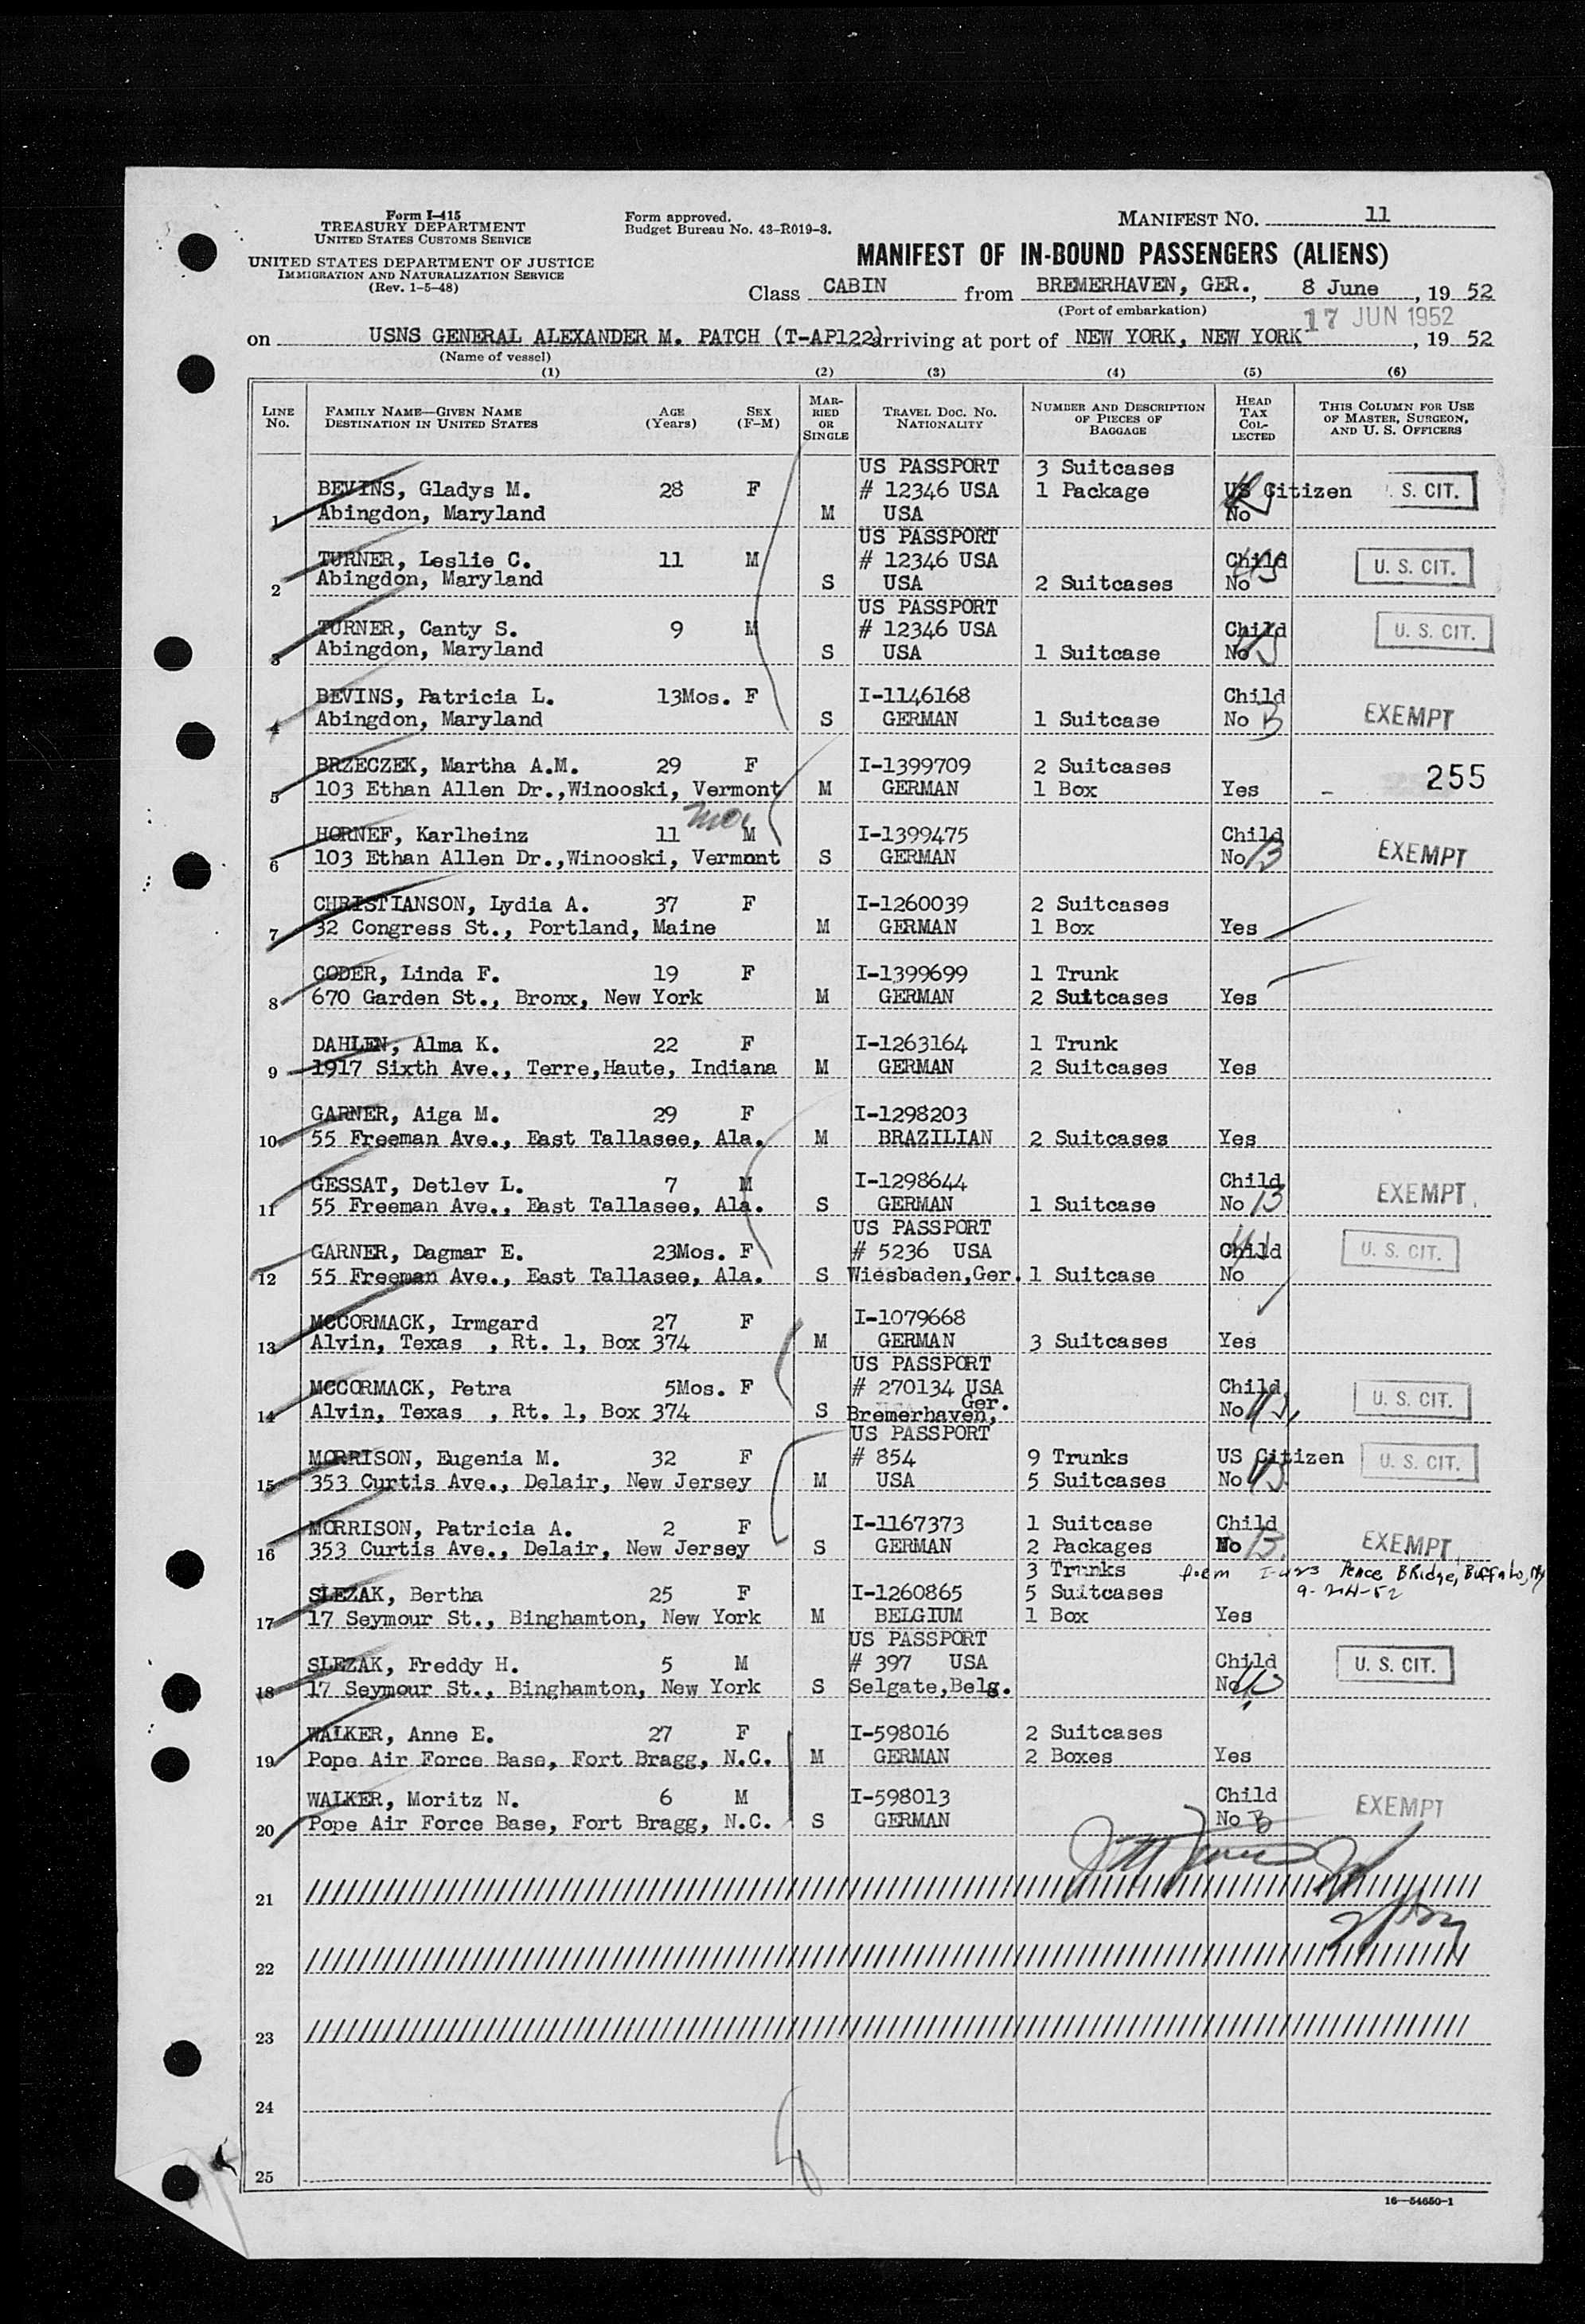 Form I-415
TREASURY DEPARTMENT
UNITED STATES CUSTOMS SERVICE
UNITED STATES DEPARTMENT OF JUSTICE
IMMIGRATION AND NATURALIZATION SERVICE
(Rev. 1-5-48)
Form approved.
Budget Bureau No. 43-R019-3.
MANIFEST NO. 11
MANIFEST OF IN-BOUND PASSENGERS (ALIENS)
Class CABIN from BREMERHAVEN, GER., 8 June, 19 52
(Port of embarkation)
17 JUN 1952
on USNS GENERAL ALEXANDER M. PATCH (T-AP122) arriving at port of NEW YORK, NEW YORK, 19 52
(Name of vessel)
(1) (2) (3) (4) (5) (6)
LINE No. FAMILY NAME—GIVEN NAME DESTINATION IN UNITED STATES AGE (Years) SEX (F-M) MARRIED OR SINGLE TRAVEL DOC. NO. NATIONALITY NUMBER AND DESCRIPTION OF PIECES OF BAGGAGE HEAD TAX COLLECTED THIS COLUMN FOR USE OF MASTER, SURGEON, AND U. S. OFFICERS
US PASSPORT 3 Suitcases
BEVINS, Gladys M. 28 F # 12346 USA 1 Package US Citizen S. CIT.
1 Abingdon, Maryland M USA No
US PASSPORT
TURNER, Leslie C. 11 M # 12346 USA Child U. S. CIT.
2 Abingdon, Maryland S USA 2 Suitcases No
US PASSPORT
TURNER, Canty S. 9 M # 12346 USA Child U. S. CIT.
3 Abingdon, Maryland S USA 1 Suitcase No
BEVINS, Patricia L. 13Mos. F I-1146168 Child
4 Abingdon, Maryland S GERMAN 1 Suitcase No B EXEMPT
BRZECZEK, Martha A.M. 29 F I-1399709 2 Suitcases 255
5 103 Ethan Allen Dr.,Winooski, Vermont M GERMAN 1 Box Yes -
mos
HORNEF, Karlheinz 11 M I-1399475 Child
6 103 Ethan Allen Dr.,Winooski, Vermont S GERMAN No B EXEMPT
CHRISTIANSON, Lydia A. 37 F I-1260039 2 Suitcases
7 32 Congress St., Portland, Maine M GERMAN 1 Box Yes
CODER, Linda F. 19 F I-1399699 1 Trunk
8 670 Garden St., Bronx, New York M GERMAN 2 Suitcases Yes
DAHLEN, Alma K. 22 F I-1263164 1 Trunk
9 1917 Sixth Ave., Terre,Haute, Indiana M GERMAN 2 Suitcases Yes
GARNER, Aiga M. 29 F I-1298203
10 55 Freeman Ave., East Tallasee, Ala. M BRAZILIAN 2 Suitcases Yes
GESSAT, Detlev L. 7 M I-1298644 Child
11 55 Freeman Ave., East Tallasee, Ala. S GERMAN 1 Suitcase No B EXEMPT
US PASSPORT
GARNER, Dagmar E. 23Mos. F # 5236 USA Child U. S. CIT.
12 55 Freeman Ave., East Tallasee, Ala. S Wiesbaden,Ger. 1 Suitcase No
MCCORMACK, Irmgard 27 F I-1079668
13 Alvin, Texas , Rt. 1, Box 374 M GERMAN 3 Suitcases Yes
US PASSPORT
MCCORMACK, Petra 5Mos. F # 270134 USA Child U. S. CIT.
Ger.
14 Alvin, Texas , Rt. 1, Box 374 S Bremerhaven, No
US PASSPORT
MORRISON, Eugenia M. 32 F # 854 9 Trunks US Citizen U. S. CIT.
15 353 Curtis Ave., Delair, New Jersey M USA 5 Suitcases No
MORRISON, Patricia A. 2 F I-1167373 1 Suitcase Child
16 353 Curtis Ave., Delair, New Jersey S GERMAN 2 Packages No B. EXEMPT
3 Trunks form I-423 Peace Bridge, Buffalo, NY
SLEZAK, Bertha 25 F I-1260865 5 Suitcases 9-24-52
17 17 Seymour St., Binghamton, New York M BELGIUM 1 Box Yes
US PASSPORT
SLEZAK, Freddy H. 5 M # 397 USA Child U. S. CIT.
18 17 Seymour St., Binghamton, New York S Selgate,Belg. No
WALKER, Anne E. 27 F I-598016 2 Suitcases
19 Pope Air Force Base, Fort Bragg, N.C. M GERMAN 2 Boxes Yes
WALKER, Moritz N. 6 M I-598013 Child EXEMPT
20 Pope Air Force Base, Fort Bragg, N.C. S GERMAN No B
21
22
23
24
25
16—54650-1